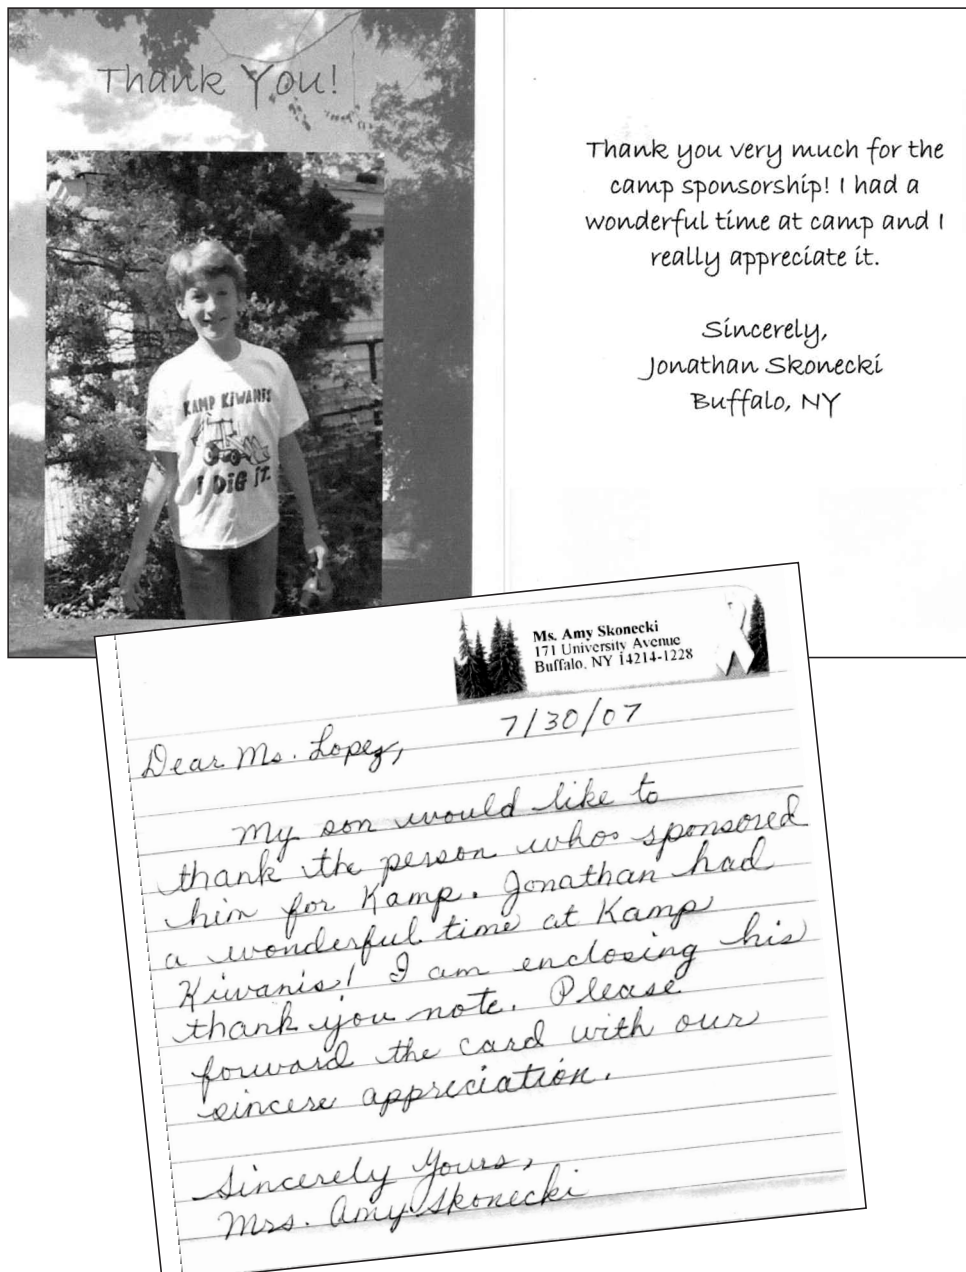 Thank You!
KAMP KIWANIS
I DIG IT.
Thank you very much for the
camp sponsorship! I had a
wonderful time at camp and I
really appreciate it.
Sincerely,
Jonathan Skonecki
Buffalo, NY
Ms. Amy Skonecki
171 University Avenue
Buffalo, NY 14214-1228
7/30/07
Dear Ms. Lopez,
My son would like to
thank the person who sponsored
him for Kamp. Jonathan had
a wonderful time at Kamp
Kiwanis! I am enclosing his
thank you note. Please
forward the card with our
sincere appreciation.
Sincerely Yours,
Mrs. Amy Skonecki